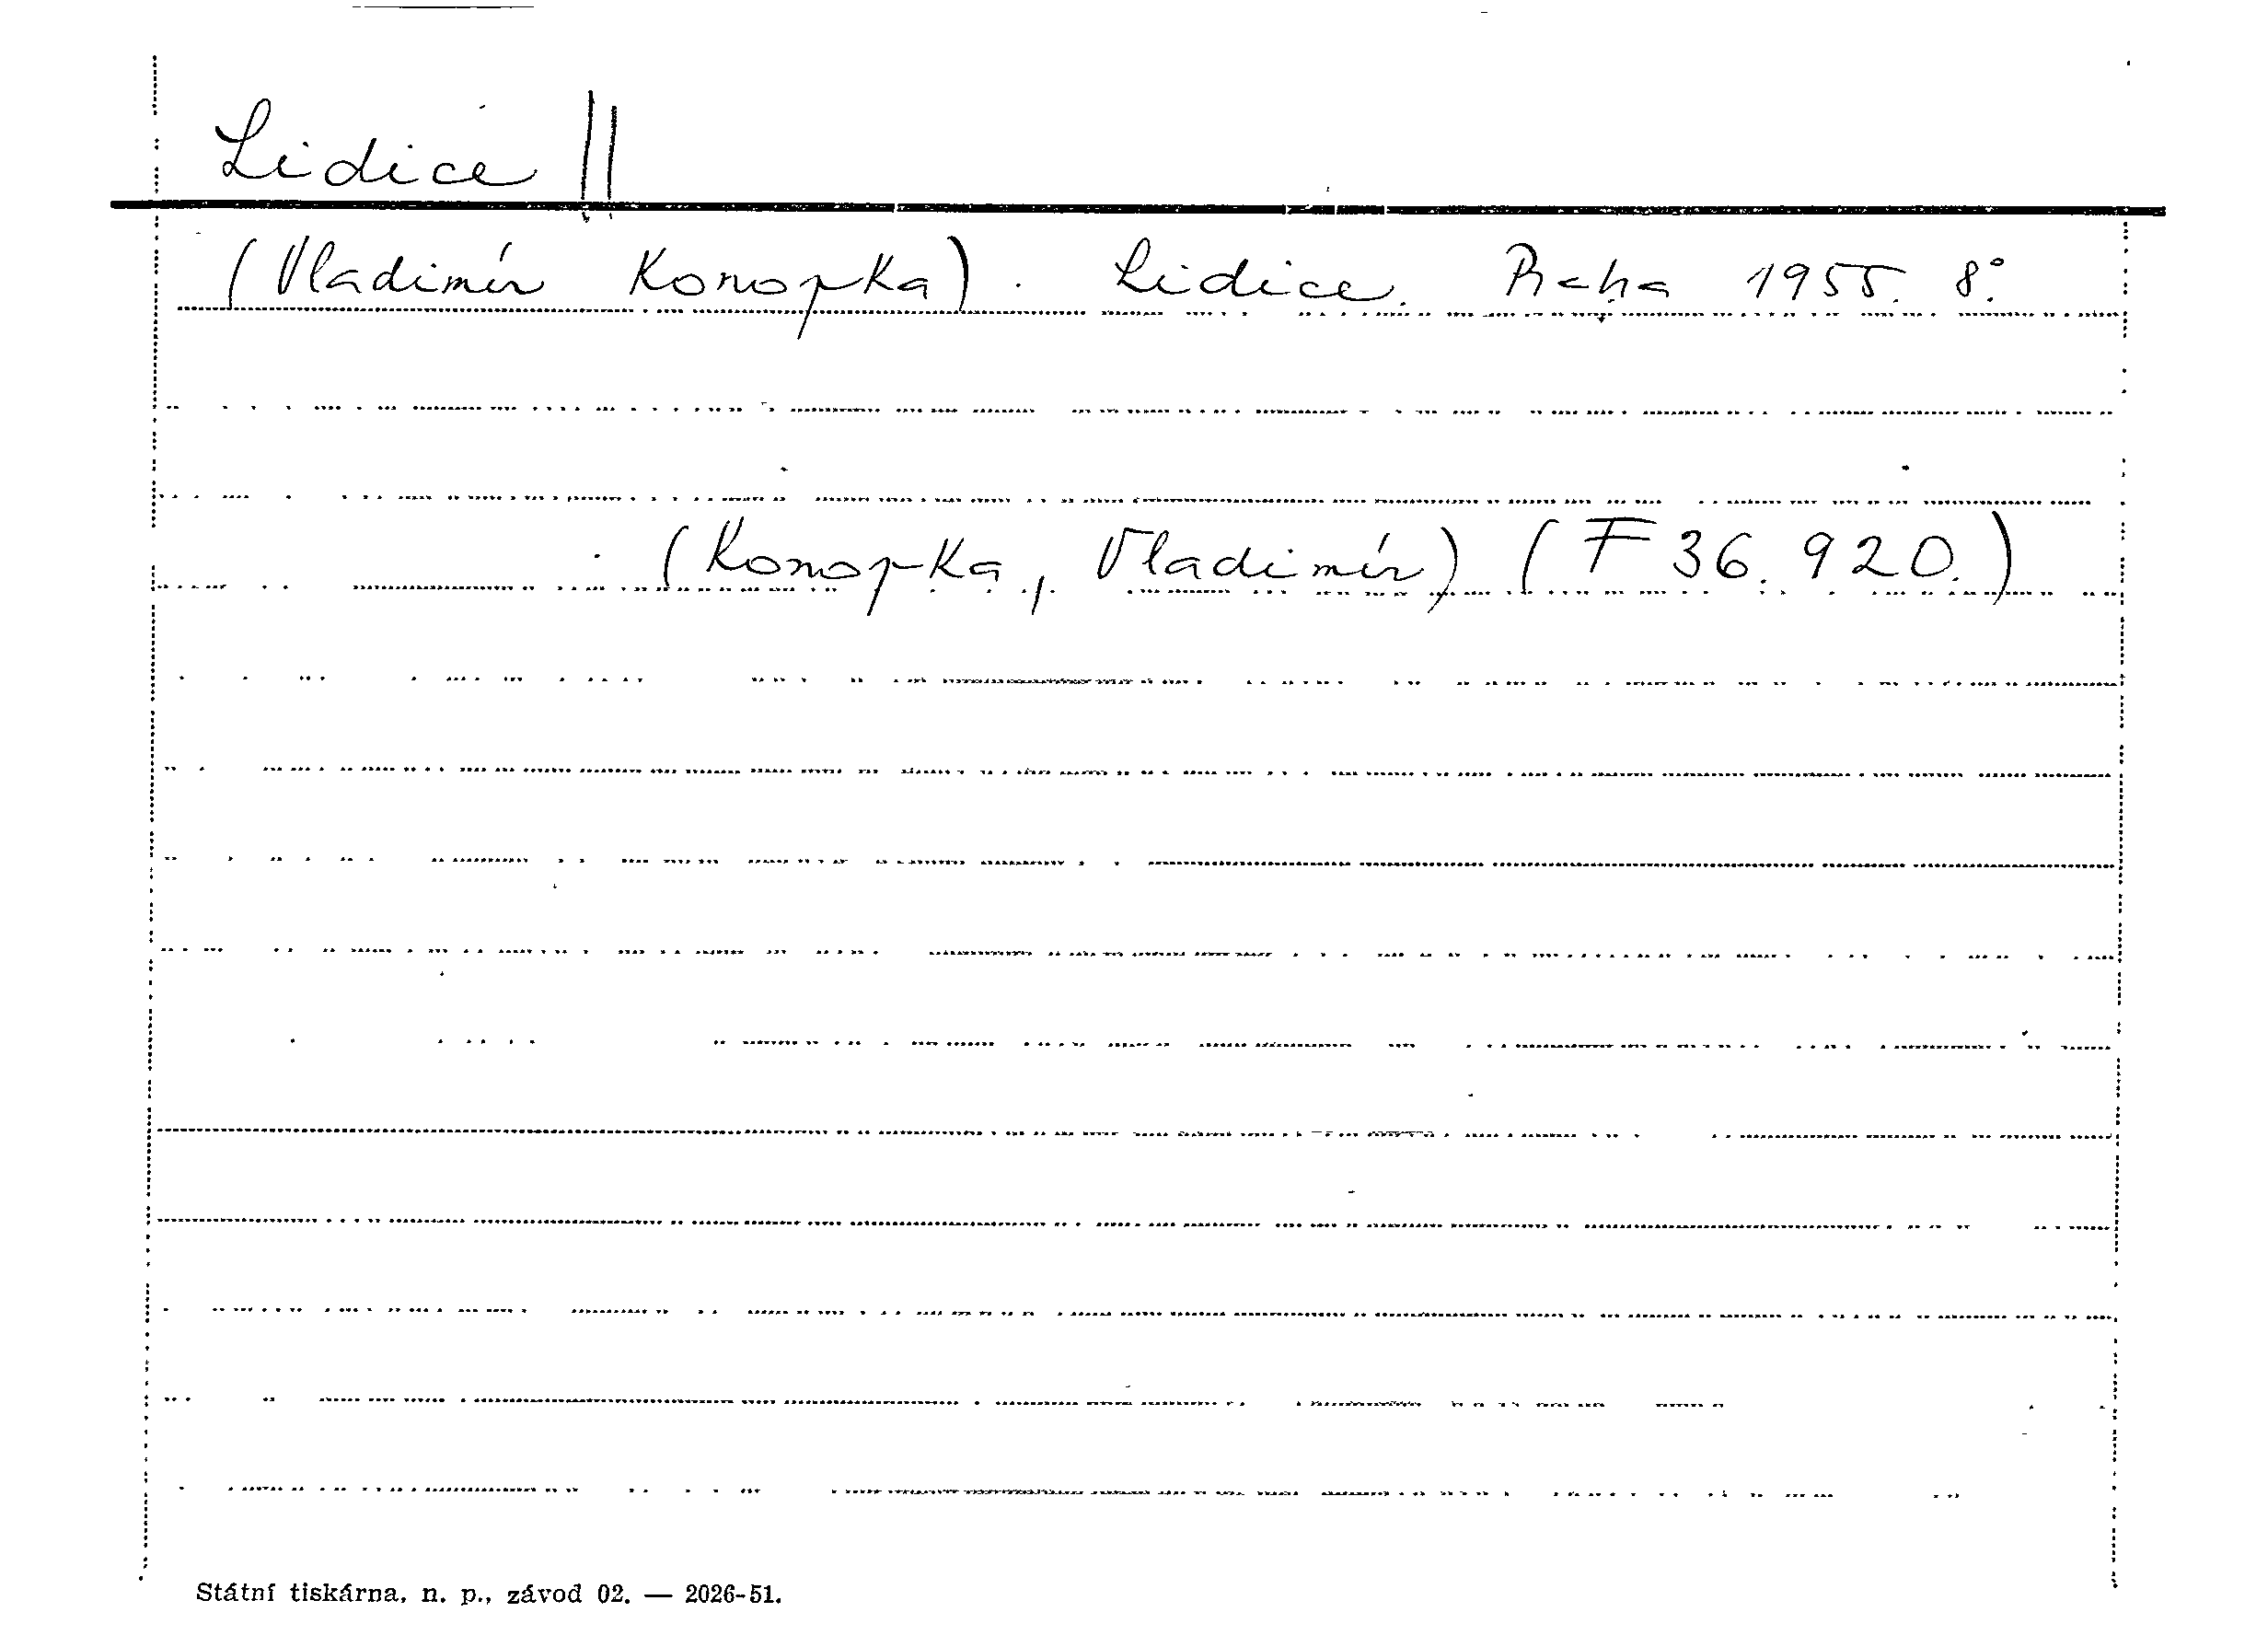 Lidice ||
(Vladimír Konopka). Lidice. Praha 1955. 8°.
(Konopka, Vladimír) (F 36.920.)
Státní tiskárna, n. p., závod 02. — 2026-51.